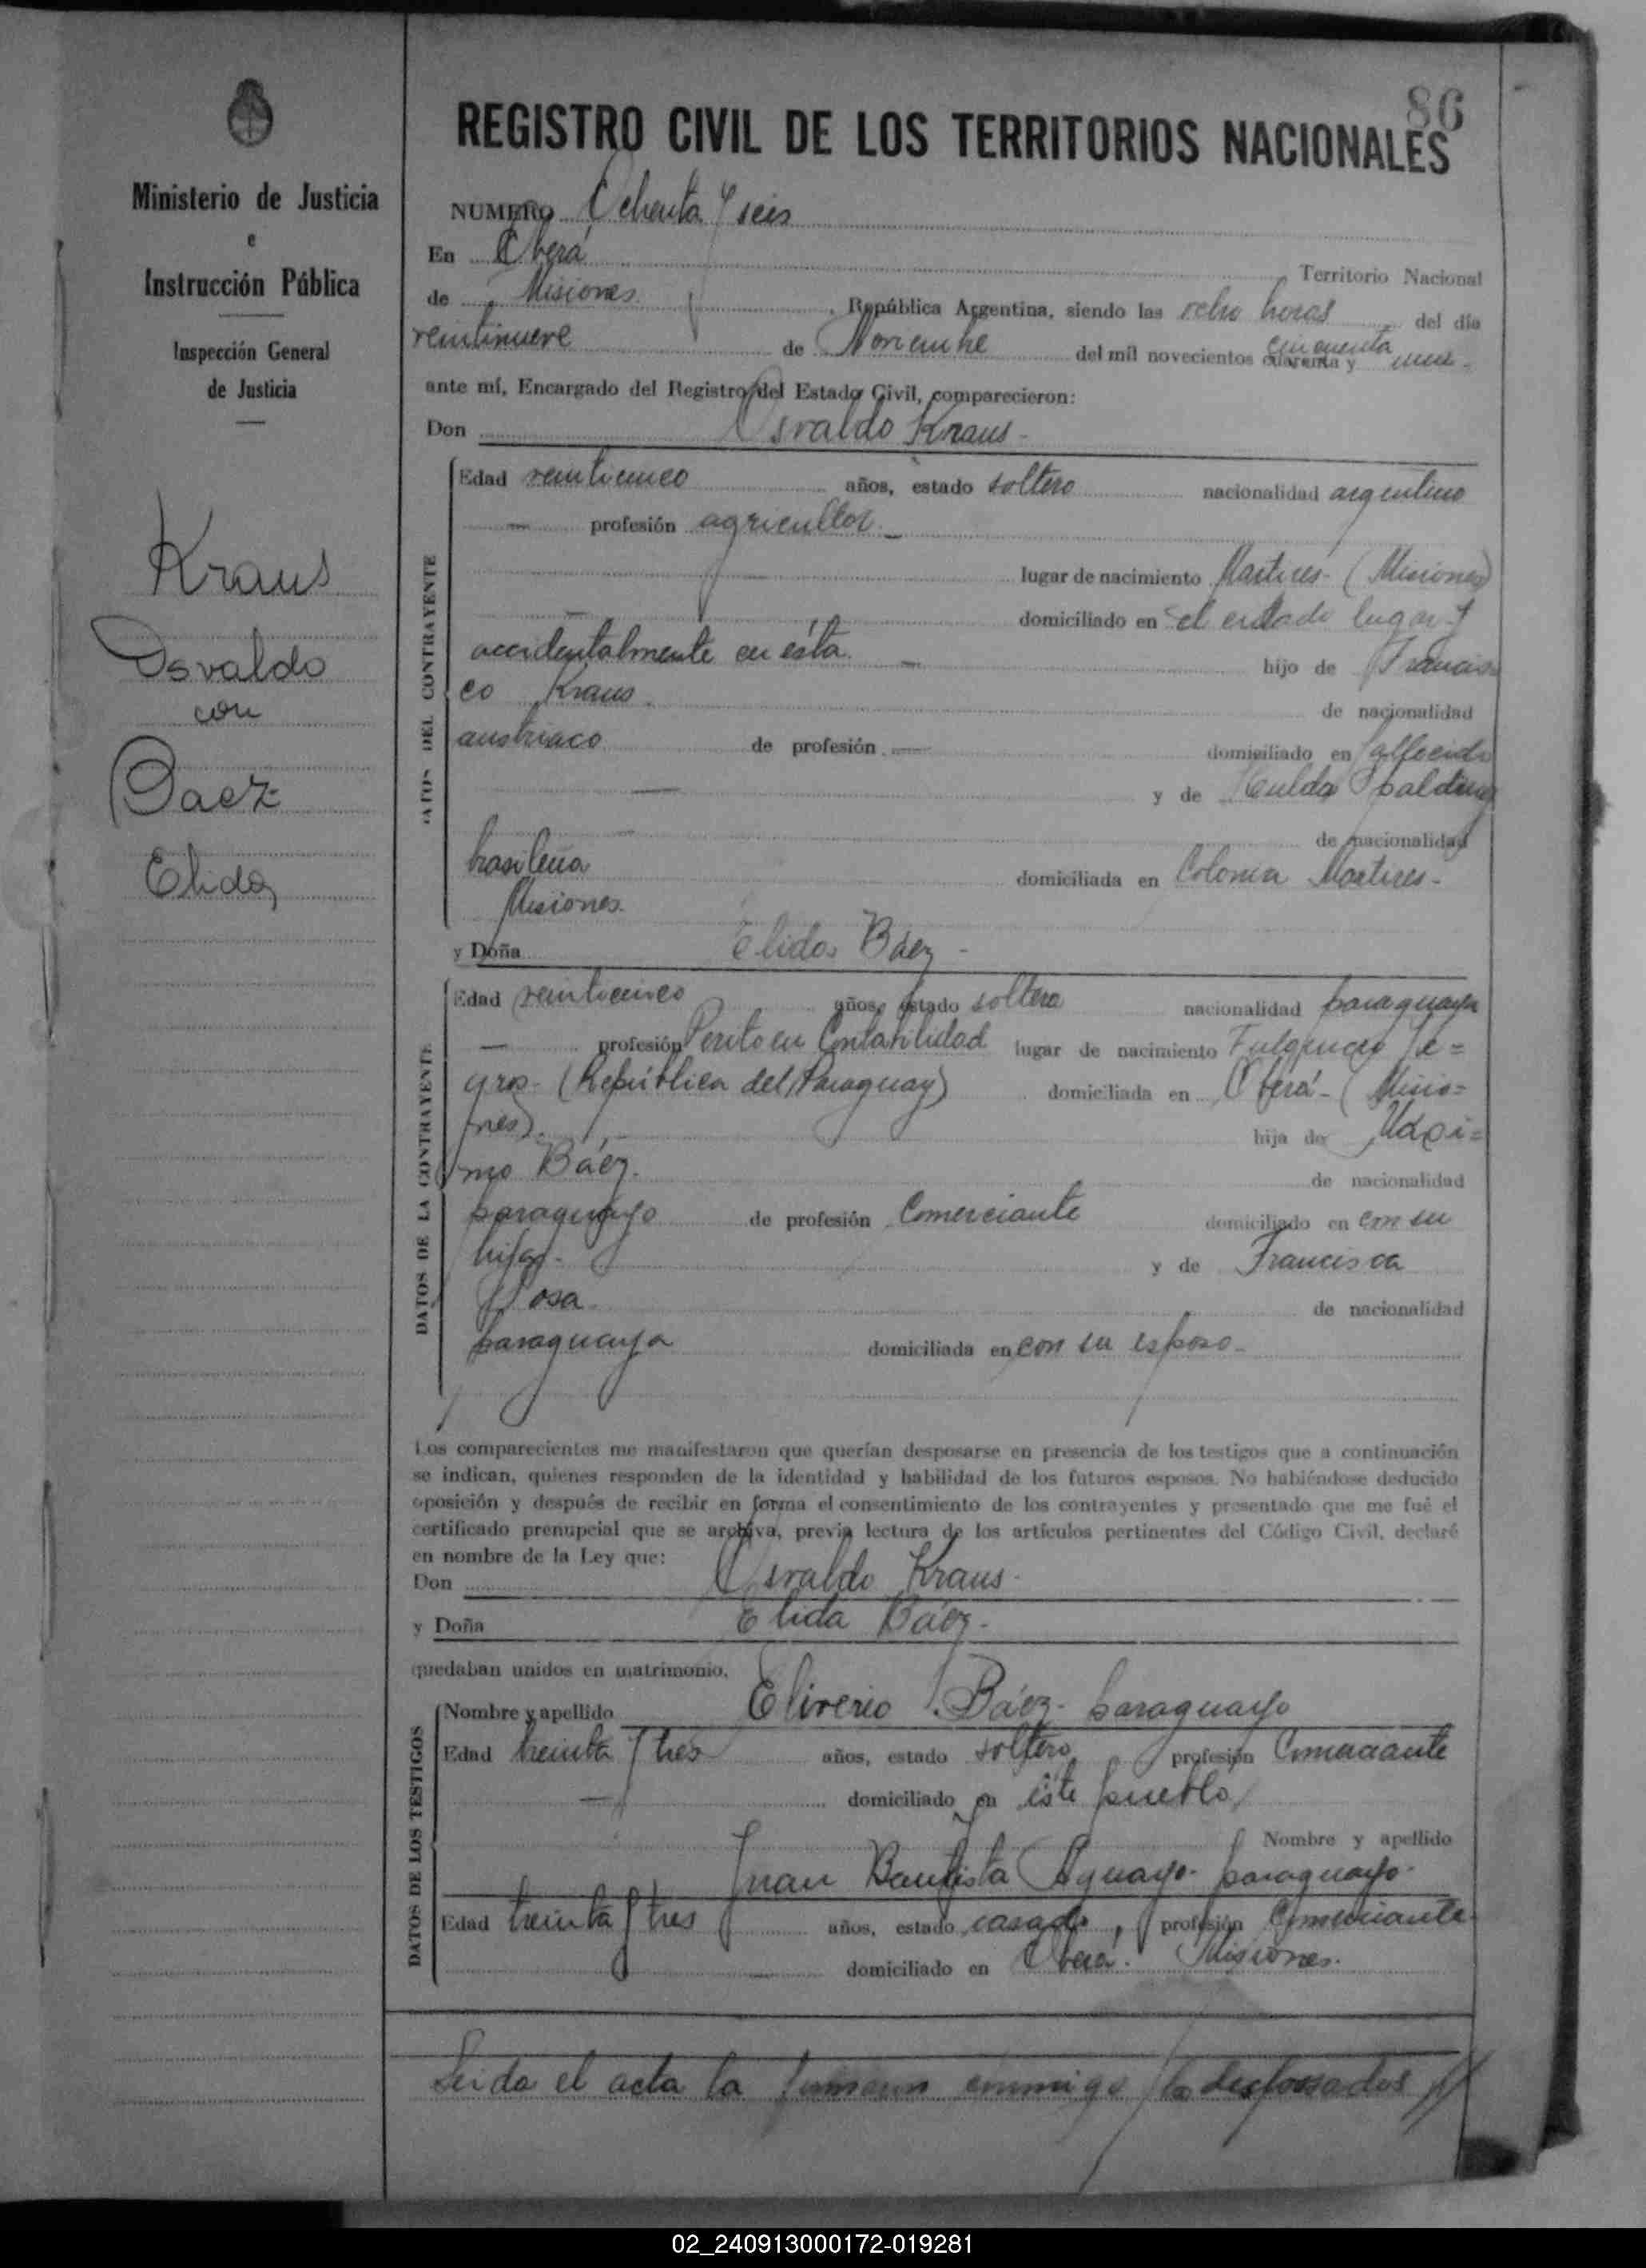 Ministerio de Justicia
e
Instrucción Pública
Inspección General
de Justicia
Kraus
Osvaldo
con
Baez
Elida
86
REGISTRO CIVIL DE LOS TERRITORIOS NACIONALES
NUMERO Ochenta y seis
En Oberá Territorio Nacional
de Misiones, República Argentina, siendo las ocho horas del día
veintinueve de Noviembre del mil novecientos cuarenta y cincuenta uno.
ante mí, Encargado del Registro del Estado Civil, comparecieron:
Don Osvaldo Kraus-
DATOS DEL CONTRAYENTE
Edad veinticinco años, estado soltero nacionalidad argentino
— profesión agricultor. —
lugar de nacimiento Martires- (Misiones)
— domiciliado en el citado lugar y
accidentalmente en ésta. — hijo de Francis
co Kraus. de nacionalidad
austriaco de profesión — domiciliado en fallecido
— y de Hulda Spalding
— de nacionalidad
brasileña domiciliada en Colonia Martires-
Misiones.
y Doña Elida Báez -
DATOS DE LA CONTRAYENTE
Edad veinticinco años, estado soltera nacionalidad paraguaya
— profesión Perito en Contabilidad lugar de nacimiento Fulgencio Ye=
gros- (República del Paraguay) domiciliada en Oberá- (Misio=
nes). hija de Máxi=
mo Báez. de nacionalidad
paraguayo de profesión Comerciante domiciliado en con su
hija- y de Francisca
Sosa. de nacionalidad
paraguaya domiciliada en con su esposo-
Los comparecientes me manifestaron que querían desposarse en presencia de los testigos que a continuación
se indican, quienes responden de la identidad y habilidad de los futuros esposos. No habiéndose deducido
oposición y después de recibir en forma el consentimiento de los contrayentes y presentado que me fué el
certificado prenupcial que se archiva, previa lectura de los artículos pertinentes del Código Civil, declaré
en nombre de la Ley que:
Don Osvaldo Kraus-
y Doña Elida Báez-
quedaban unidos en matrimonio.
DATOS DE LOS TESTIGOS
Nombre y apellido Eliverio Báez- paraguayo
Edad treinta y tres años, estado soltero, profesión Comerciante
— domiciliado en éste pueblo,
Nombre y apellido
Juan Bautista Aguayo- paraguayo-
Edad treinta y tres años, estado casado, profesión Comerciante.
— domiciliado en Oberá. Misiones.
Leida el acta la firmaron conmigo los desposados y
02_240913000172-019281